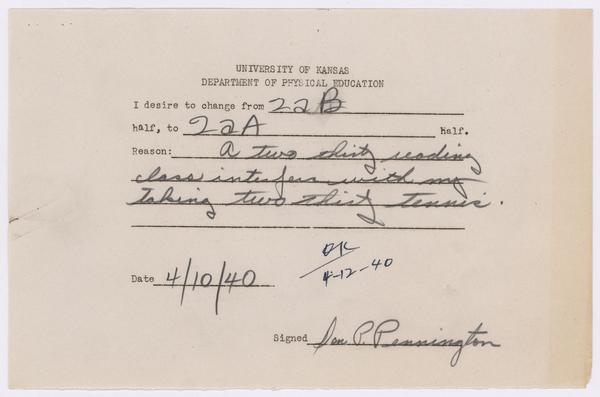 UNIVERSITY OF KANSAS
DEPARTMENT OF PHYSICAL EDUCATION
I desire to change from 22B
half, to 22A Half.
Reason: A two thirty reading
class interfers with my
taking two thirty tennis.
OK
4-12-40
Date 4/10/40
Signed P. Pennington